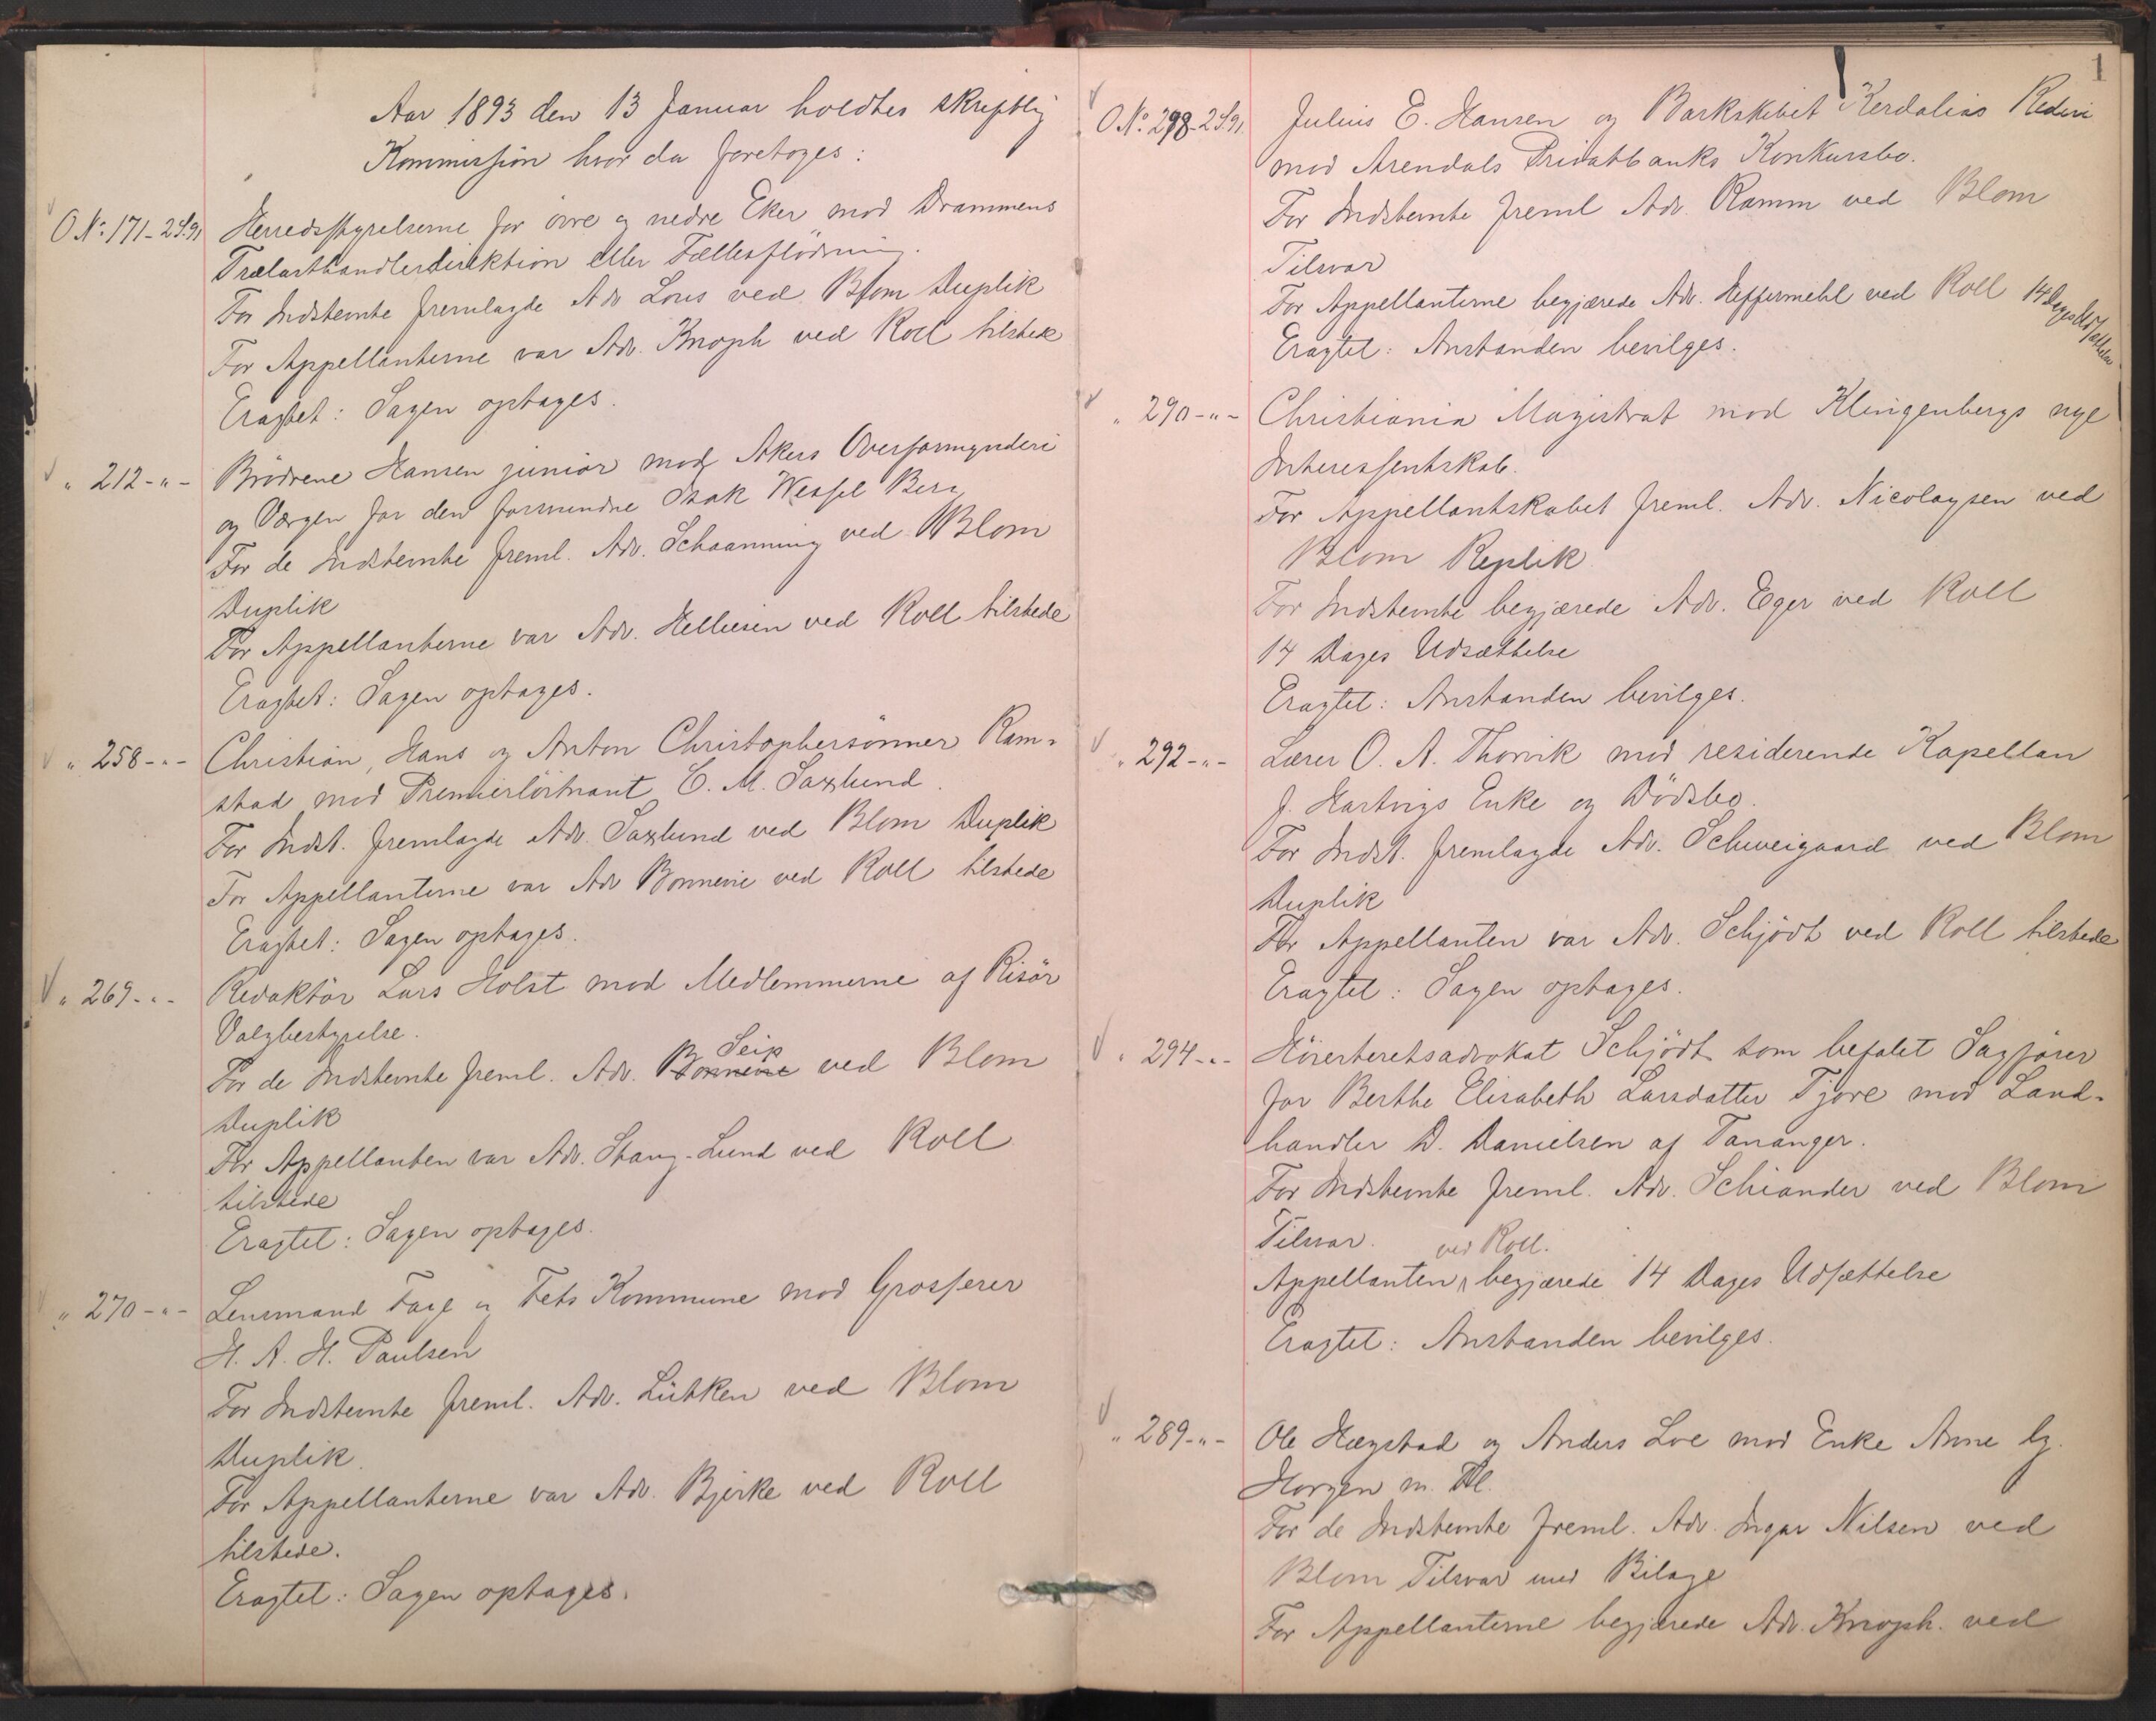 Aar 1893 den 13 Januar holdtes skriftlig
Kommission hvor da foretoges:
O.№ 171-2S.91 Herredsstyrelserne for övre og nedre Eker mod Drammens
Trælasthandlerdirektion eller Fællesflödning.
For Indstevnte fremlagde Adv Lous ved Blom Duplik
For Appellanterne var Adv. Knoph ved Roll tilstede
Eragtet: Sagen optages.
" 212-"- Brödrene Hansen junior mod Akers Overformynderi
og Værgen for den formyndre Isak Wessel Berg
For de Indstevnte freml. Adv. Schaanning ved Blom
Duplik
For Appellanterne var Adv. Helliesen ved Roll tilstede
Eragtet: Sagen optages.
" 258-"- Christian, Hans og Anton Christophersönner Ram-
stad mod Premierlöitnant C. M. Saxlund.
For Indst. fremlagde Adv. Saxlund ved Blom Duplik
For Appellanterne var Adv Bonnevie ved Roll tilstede
Eragtet: Sagen optages.
" 269-"- Redaktör Lars Holst mod Medlemmerne af Risör
Valgbestyrelse.
Seip
For de Indstevnte freml. Adv. Bonnevie ved Blom
Duplik
For Appellanten var Adv. Stang-Lund ved Roll
tilstede
Eragtet: Sagen optages.
" 270-"- Lensmand Faye og Fets Kommune mod Grosserer
H. A. H. Paulsen
For Indstevnte freml. Adv. Lütken ved Blom
Duplik.
For Appellanterne var Adv. Bjerke ved Roll
tilstede.
Eragtet: Sagen optages.
1
O.№ 298-2S.91. Julius E. Hansen og Barkskibet Kerdalias Rederi
mod Arendals Privatbanks Konkursbo.
For Indstevnte freml Adv. Ramm ved Blom
Tilsvar
For Appellanterne begjærede Adv. Heffermehl ved Roll 14 Dages Udsættelse
Eragtet: Anstanden bevilges.
" 290-"- Christiania Magistrat mod Klingenbergs nye
Interessentskab.
For Appellantskabet freml. Adv. Nicolaysen ved
Blom Replik
For Indstevnte begjærede Adv. Eger ved Roll
14 Dages Udsættelse
Eragtet: Anstanden bevilges.
" 292-"- Lærer O. A. Thorvik mod residerende Kapellan
J. Hartvigs Enke og Dödsbo.
For Indst. fremlagde Adv. Schweigaard ved Blom
Duplik
For Appellanten var Adv. Schjödt ved Roll tilstede
Eragtet: Sagen optages.
" 294-"- Höiesteretsadvokat Schjödt som befalet Sagförer
for Berthe Elisabeth Larsdatter Tjore mod Land-
handler D. Danielsen af Tananger.
For Indstevnte freml. Adv. Schiander ved Blom
Tilsvar.
ved Roll.
Appellanten begjærede 14 Dages Udsættelse
Eragtet: Anstanden bevilges.
" 289-"- Ole Hægstad og Anders Loe mod Enke Anne
Horgen m. Fl.
For de Indstevnte freml. Adv. Ingar Nilsen ved
Blom Tilsvar med Bilage
For Appellanterne begjærede Adv. Knoph. ved